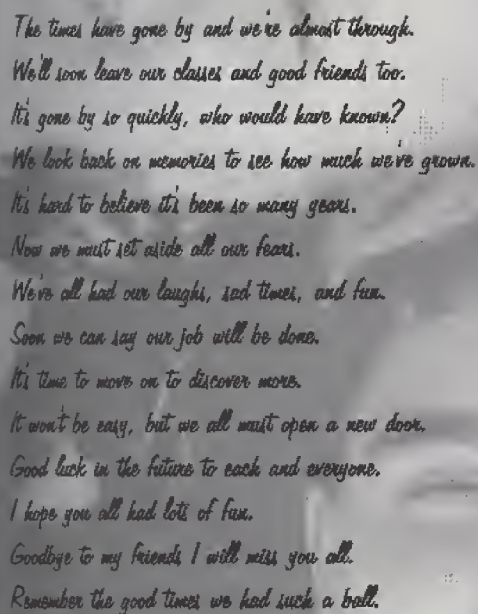 The times have gone by and we're almost through.
We'll soon leave our classes and good friends too.
It's gone by so quickly, who would have known?
We look back on memories to see how much we've grown.
It's hard to believe it's been so many years.
Now we must set aside all our fears.
We've all had our laughs, sad times, and fun.
Soon we can say our job will be done.
It's time to move on to discover more.
It won't be easy, but we all must open a new door.
Good luck in the future to each and everyone.
I hope you all had lots of fun.
Goodbye to my friends I will miss you all.
Remember the good times we had such a ball.